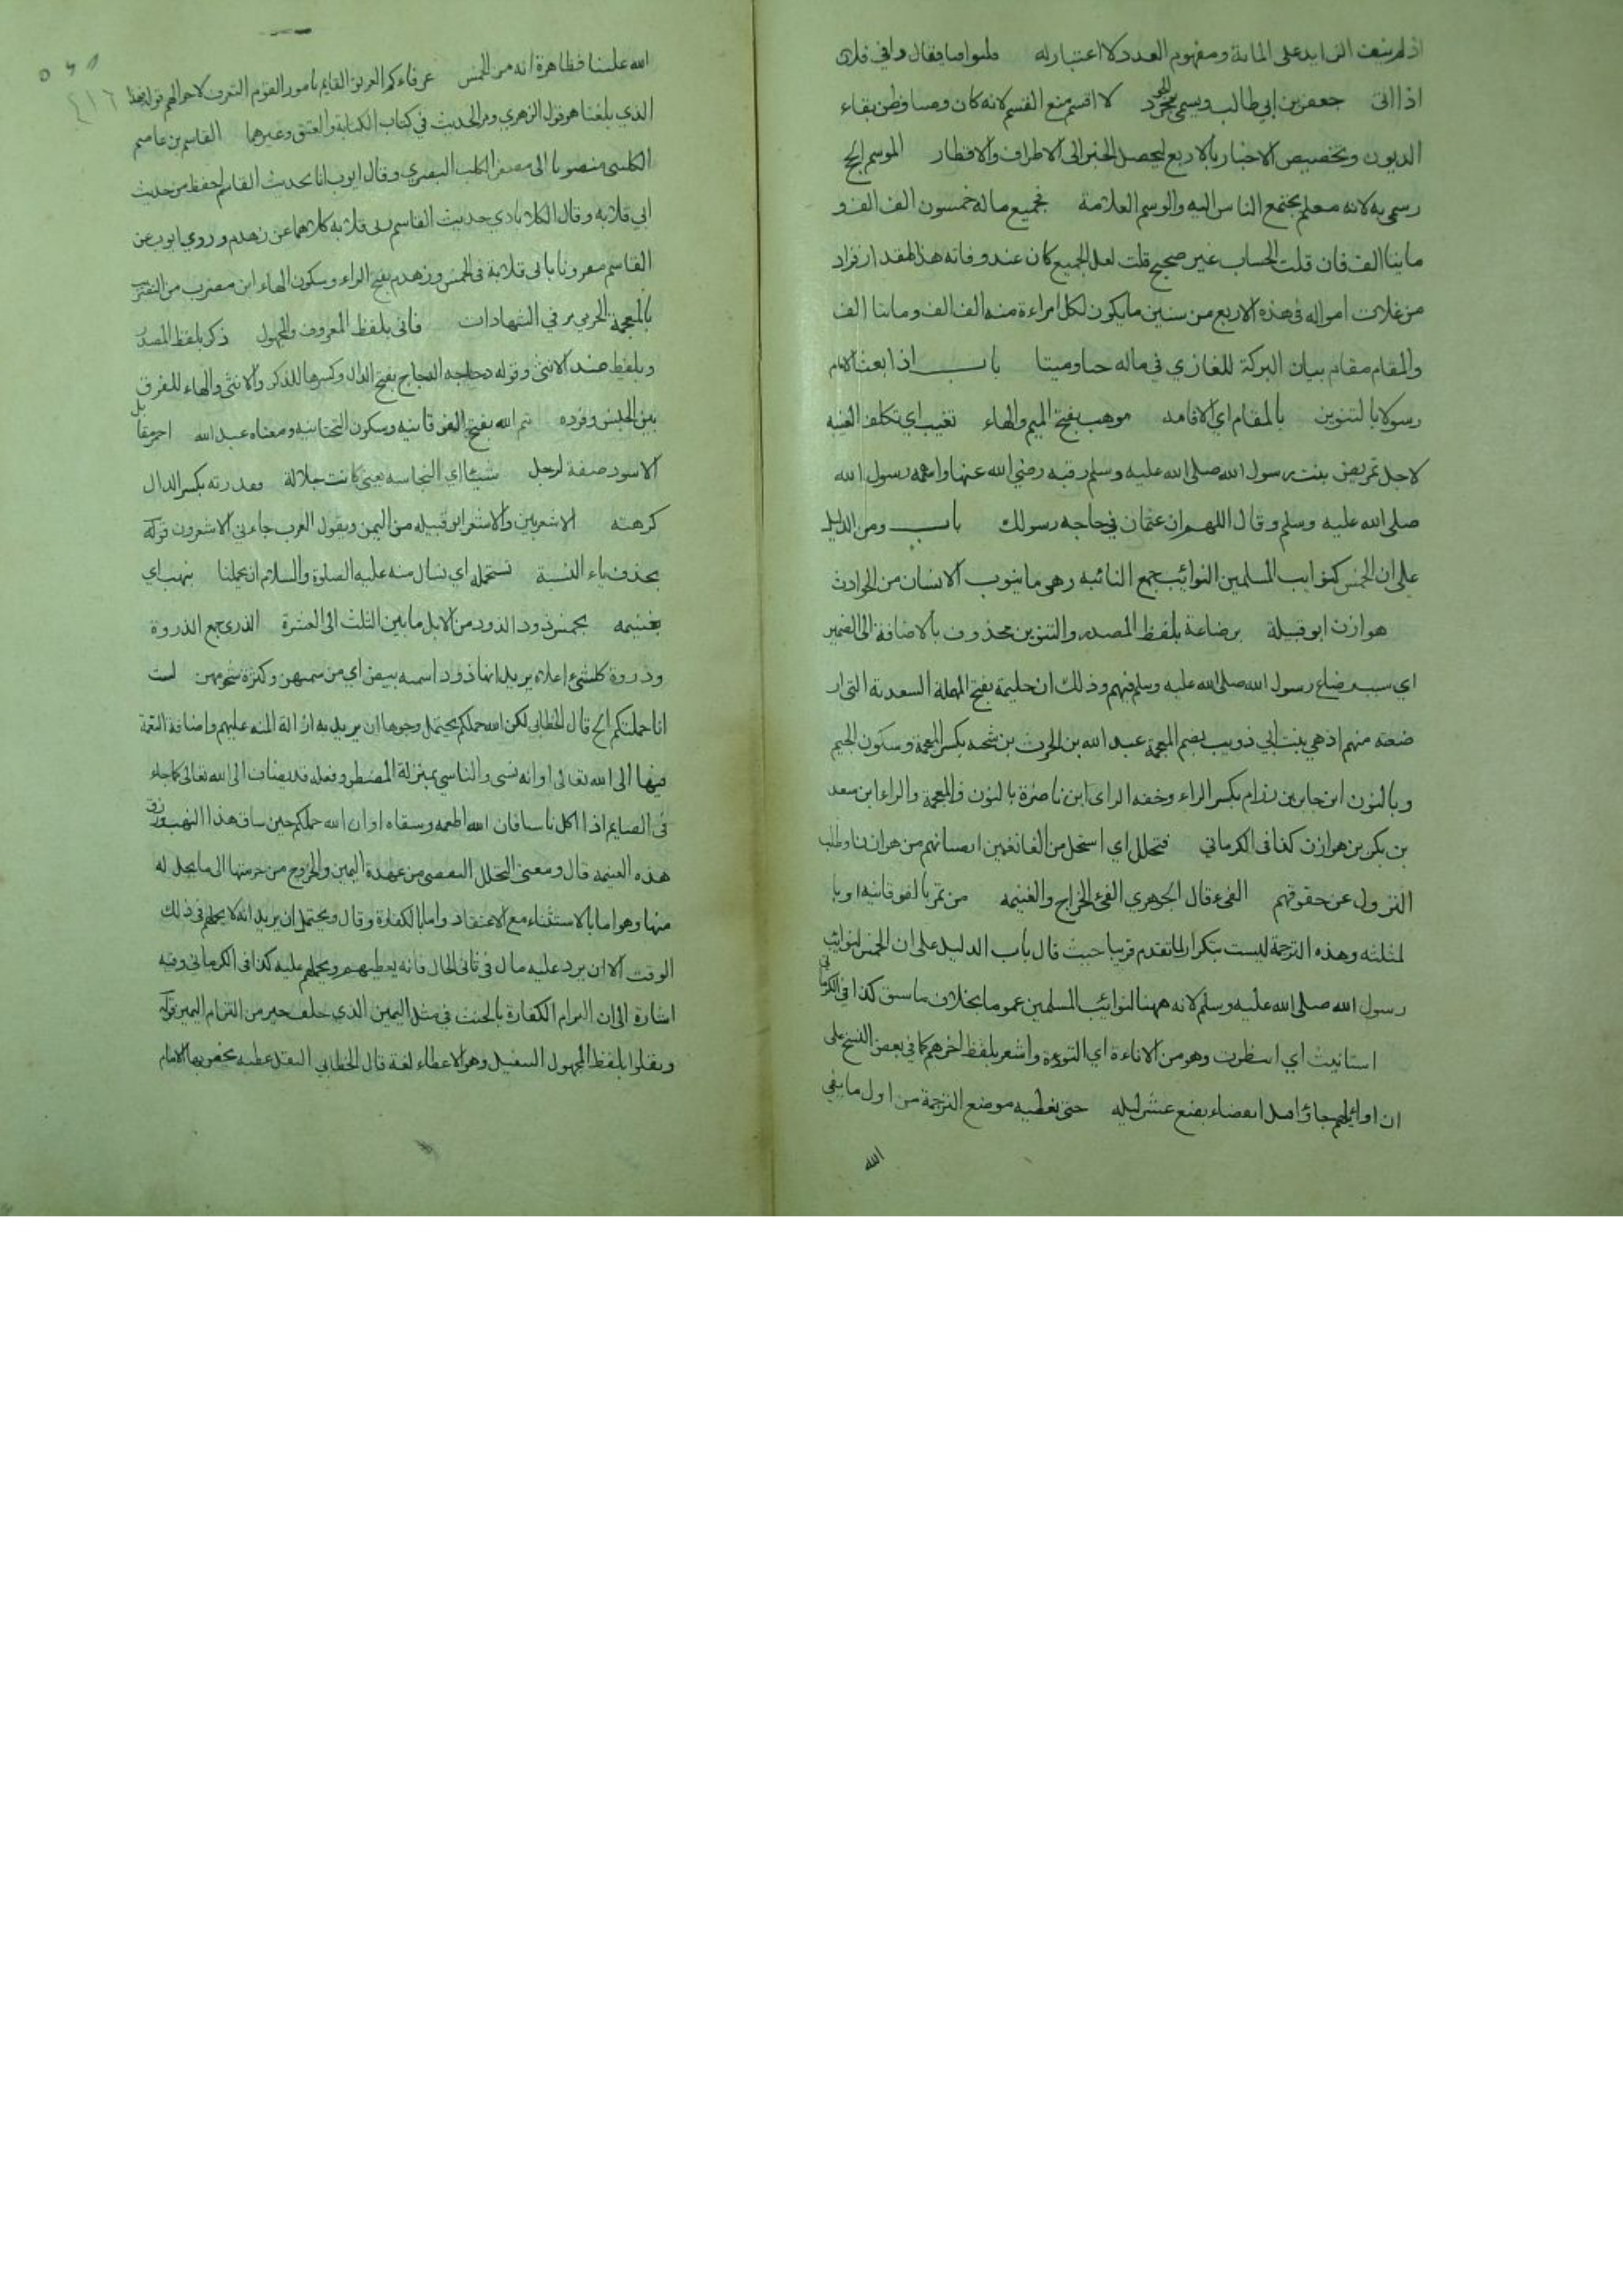 اذ لم ينف الزايد على المائة ومفهوم العدد لا اعتبار له فقال
اذا اتى جعفر بن ابي طالب ويسمى لا اقسم منع القسم لانه كان وصيا وظن بقاء
الديون وتخصيص الاخبار بالاربع ليحصل الخبر الى الاطراف والاقطار الموسم الخ
سمي به لانه معلم يجتمع الناس اليه والوسم العلامة فجميع ماله خمسون الف الف و
مايتا الف فان قلت الحساب غير صحيح قلت لعل الجميع كان عند وفاته هذا المقدار فزاد
من غلات امواله في هذه الاربع من سنين ما يكون لكل امراءة منه الف الف ومايتا الف
والمقام مقام بيان البركة للغازي في ماله حيا وميتا باب اذا بعث الامام
رسولا بالتنوين بالمقام اي الاقامه موهب بفتح الميم والهاء تغيب اي تكلف الغيبه
لاجل تمريض بنت رسول الله صلى الله عليه وسلم رقيه رضي الله عنها رسول الله
صلى الله عليه وسلم وقال اللهم ان عثمان في حاجه رسولك باب ومن الدليل
على ان الخمس لنوايب المسلمين النوائب جمع النائبه وهي ما ينوب الانسان من الحوادث
هوازن ابو قبيلة برضاعة بلفظ المصدر والتنوين محذوف بالاضافة الى الضمير
اي سبب رضاع رسول الله صلى الله عليه وسلم فيهم وذلك ان حليمة بفتح المهملة السعدية التي ار
ضعته منهم اذ هي بنت ابي ذويب بضم المعجمة عبد الله بن الحرث بن شجنه بكسر المعجمة وسكون الجيم
وبالنون ابن جابر بن رزام بكسر الراء وخفه الزاى ابن ناصرة بالنون والمعجمة والراء ابن سعد
بن بكر بن هوازن كذا في الكرماني فتحلل اي استحل من الغانمين من هوازن وطلب
النزول عن حقوقهم الفئ قال الجوهري الفئ الخراج والغنيمه من تمر بالفوقانيه او با
لمثلثه وهذه الترجمة ليست بتكرار لما تقدم قريبا حيث قال باب الدليل على ان الخمس لنوائب
رسول الله صلى الله عليه وسلم لانه ههنا لنوائب المسلمين عموما بخلاف ما سبق كذا في الكرماني
استانيت اي انتظرت وهو من الاناءة اي التوءدة واشعر بلفظ اخرهم كما في بعض النسخ على
ان اوائلهم جاؤا قبل انقضاء بضع عشر ليله حتى نعطيه موضع الترجمة من اول ما يفي
الله
الله علينا فظاهرة انه من الخمس عرفاءكم العريف القايم بامور القوم المتعرف لاحوالهم قوله فهذا
الذي بلغنا هو قول الزهري ومر الحديث في كتاب الكتابة والعتق وغيرهما القاسم بن عاصم
الكليبي منصوبا الى مصغر الكلب البصري وقال ايوب انا بحديث القاسم احفظ من حديث
ابي قلابه وقال الكلاباذي حديث القاسم وابي قلابه كلاهما عن زهدم وروى ايوب عن
القاسم مقرونا بابي قلابة في الخمس وزهدم بفتح الزاء وسكون الهاء ابن مضرب من التضريب
بالمعجمة الجرمي مر في الشهادات فاتى بلفظ المعروف والمجهول ذكر بلفظ المصدر
وبلفظ ضد الانثى وقوله دجاجه الدجاج بفتح الدال وكسرها للذكر والانثى والهاء للفرق
بين الجنس وفرده تيم الله بفتح الفوقانيه وسكون التحتانيه ومعناه عبد الله احمر مقابل
الاسود صفة لرجل شيئا اي النجاسه يعني كانت جلالة فقذرته بكسر الذال
كرهته الاشعريين والاشعر ابو قبيله من اليمن ويقول العرب جاءني الاشعرون قوله
بحذف ياء النسبة نستحمله اي نسال منه عليه الصلوة والسلام ان يحملنا بنهب اي
بغنيمه بخمس ذود الذود من الابل ما بين الثلث الى العشرة الذرى جمع الذروة
وذروة كلشئ اعلاه يريد انها ذود اسنمه بيض اي من سمنهن وكثرة شحومهن لست
انا حملتكم الخ قال الخطابي لكن الله حملكم يحتمل وجوها ان يريد به ازالة المنه عليهم واضافة النعمة
فيها الى الله تعالى او انه نسي والناسي بمنزلة المضطر وفعله قد يضاف الى الله تعالى كما جاء
في الصايم اذا اكل ناسيا فان الله اطعمه وسقاه او ان الله حملكم حين ساق هذا النهب ورزق
هذه الغنيمه قال ومعنى التحلل التفصي من عهدة اليمين والخروج من حرمتها الى ما يحل له
منها وهو اما بالاستثناء مع الاعتقاد واما بالكفارة وقال ويحتمل ان يريد انه لا يحملهم في ذلك
الوقت الا ان يرد عليه مال في ثاني الحال فانه يعطيهم ويحملهم عليه كذا في الكرماني وفيه
اشارة الى ان التزام الكفارة بالحنث في مثل اليمين الذي حلف خير من التزام اليمين قوله
ونفلوا بلفظ المجهول التنفيل وهو الاعطاء لغة قال الخطابي النفل عطيه يخص بها الامام